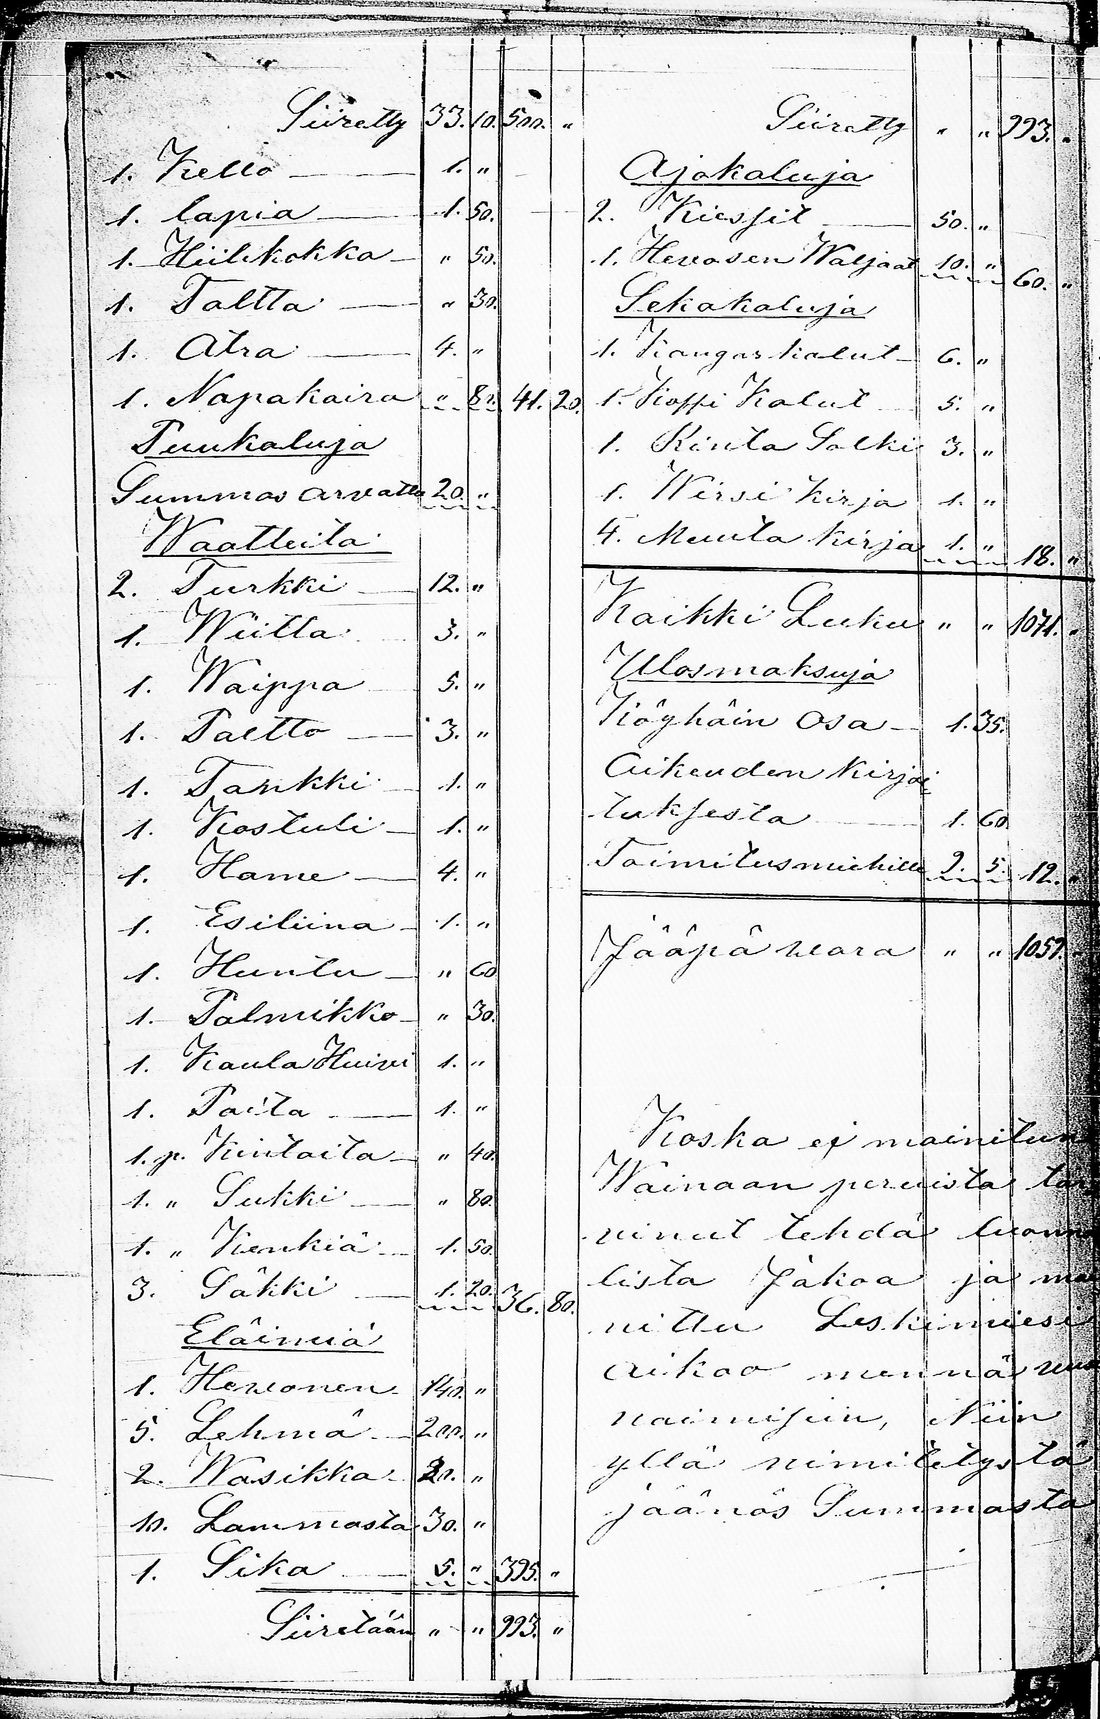 Siiretty 33. 10. 500. „
1. Kello 1. „
1. lapia 1. 50.
1. Hiilikokka „ 50.
1. Taltta „ 30.
1. Atra 4. „
1. Napakaira „ 80. 41. 20.
Puukaluja
Summas arvattu 20. „
Waatteita
2. Turkki 12. „
1. Wiitta 3. „
1. Waippa 5. „
1. Paltto 3. „
1. Tankki 1. „
1. Kostuli 1. „
1. Hame 4. „
1. Esiliina 1. „
1. Huntu „ 60
1. Palmikko „ 30.
1. Kaula Huivi 1. „
1. Paita 1. „
1. p. Kintaita „ 40.
1. „ Sukki „ 80.
1. „ Kenkiä 1. 50.
3. Säkki 1. 20. 36. 80.
Eläimiä
1. Hevonen 140. „
5. Lehmä 200. „
2. Wasikka 20. „
10. Lammasta 30. „
1. Sika 5. „ 395. „
Siiretään „ „ 993. „
Siiretty „ „ 993. „
Ajokaluja
2. Kiessit 50. „
1. Hevosen Waljaat 10. „ 60. „
Sekakaluja
1. Kangas kalut 6. „
1. Koffi Kalut 5. „
1. Rinta Solki 3. „
1. Wirsi kirja 1. „
4. Muuta kirja 1. „ 18. „
Kaikki Luku „ „ 1071. „
Ulosmaksuja
Köyhäin osa 1. 35.
Oikeuden kirjoi
tuksesta 1. 60
Toimitusmiehille 9. 5. 12. „
Jääpä vara „ „ 1059. „
Koska ej mainitun
Wainaan peruista
vinut tehdä
lista Jakoa ja
nittu Leskimiesi
aikoo mennä
naimisiin, Niin
yllä nimitetystä
jäänös Summasta